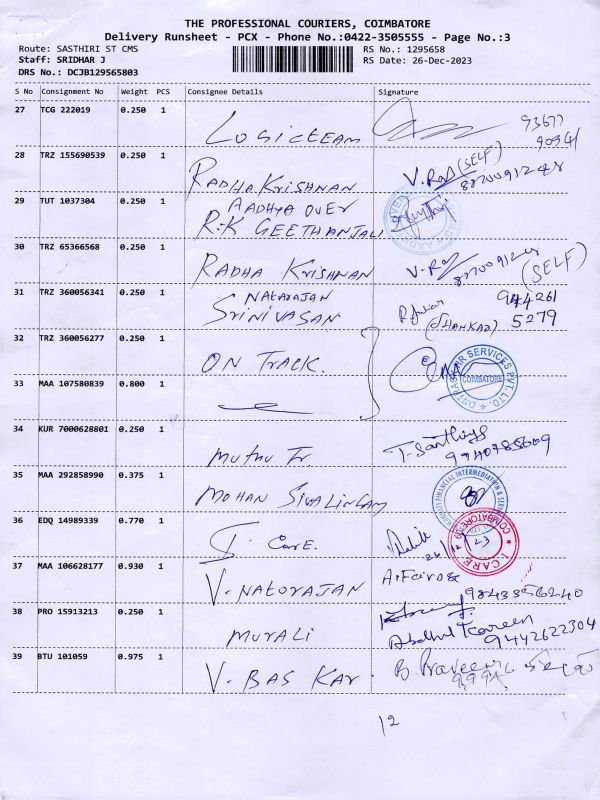 THE PROFESSIONAL COURIERS, COIMBATORE
Delivery Runsheet - PCX - Phone No.:0422-3505555 - Page No.:3
Route: SASTHIRI ST CMS
RS No.: 1295658
Staff: SRIDHAR J
RS Date: 26-Dec-2023
DRS No.: DCJB129565803
S No Consignment No Weight PCS Consignee Details Signature
27 TCG 222019 0.250 1
LOGICTEAM 93677
90941
28 TRZ 155690539 0.250 1
RADHA KRISHNAN V. Raj (SELF)
29 TUT 1037304 0.250 1
AADHYA OVER
R.K GEETHANJALI
30 TRZ 65366568 0.250 1
RADHA KRISHNAN V. Raj (SELF)
31 TRZ 360056341 0.250 1
NATARAJAN 944261
SRINIVASAN (SHANKAR) 5279
32 TRZ 360056277 0.250 1
ON TRACK.
COIMBATORE
33 MAA 107580839 0.800 1
34 KUR 7000628801 0.250 1
MUTHU Tr T. Santhiya
35 MAA 292858990 0.375 1
MOHAN SIVALINGAM
36 EDQ 14989339 0.770 1
I CARE. 26/12/23
I. CARE
COIMBATORE
37 MAA 106628177 0.930 1
V. NATORAJAN A. Fairose
38 PRO 15913213 0.250 1
9843356240
MURALI
9442622304
39 BTU 101059 0.975 1
V. BAS KAR. B. Praveen
12